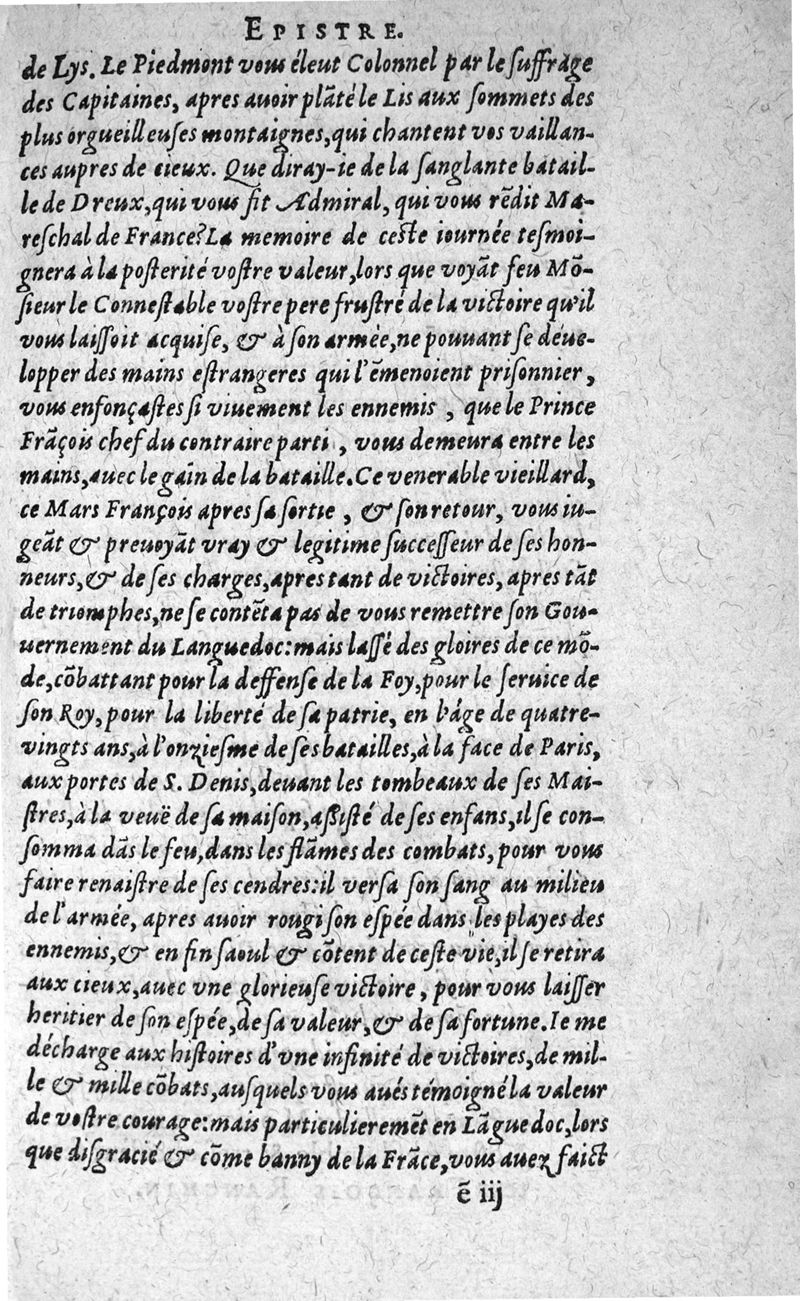 EPISTRE.
de Lys. Le Piedmont vous éleut Colonnel par le suffrage
des Capitaines, apres auoir plãté le Lis aux sommets des
plus orgueilleuses montaignes, qui chantent vos vaillan-
ces aupres de cieux. Que diray-ie de la sanglante batail-
le de Dreux, qui vous fit Admiral, qui vous rẽdit Ma-
reschal de France? La memoire de ceste iournée tesmoi-
gnera à la posterité vostre valeur, lors que voyãt feu Mõ-
sieur le Connestable vostre pere frustré de la victoire qu'il
vous laissoit acquise, & à son armée, ne pouuant se déue-
lopper des mains estrangeres qui l'ẽmenoient prisonnier,
vous enfonçastes si viuement les ennemis, que le Prince
Frãçois chef du contraire parti, vous demeura entre les
mains, auec le gain de la bataille. Ce venerable vieillard,
ce Mars François apres sa sortie, & son retour, vous iu-
geãt & preuoyãt vray & legitime successeur de ses hon-
neurs, & de ses charges, apres tant de victoires, apres tãt
de triomphes, ne se contẽta pas de vous remettre son Gou-
uernement du Languedoc: mais lassé des gloires de ce mõ-
de, cõbattant pour la deffense de la Foy, pour le seruice de
son Roy, pour la liberté de sa patrie, en l'âge de quatre-
vingts ans, à l'onziesme de ses batailles, à la face de Paris,
aux portes de S. Denis, deuant les tombeaux de ses Mai-
stres, à la veuë de sa maison, assisté de ses enfans, il se con-
somma dãs le feu, dans les flãmes des combats, pour vous
faire renaistre de ses cendres: il versa son sang au milieu
de l'armée, apres auoir rougi son espée dans les playes des
ennemis, & en fin saoul & cõtent de ceste vie, il se retira
aux cieux, auec vne glorieuse victoire, pour vous laisser
heritier de son espée, de sa valeur, & de sa fortune. Ie me
décharge aux histoires d'vne infinité de victoires, de mil-
le & mille cõbats, ausquels vous aués témoigné la valeur
de vostre courage: mais particulieremẽt en Lãguedoc, lors
que disgracié & cõme banny de la Frãce, vous auez faict
ẽ iij